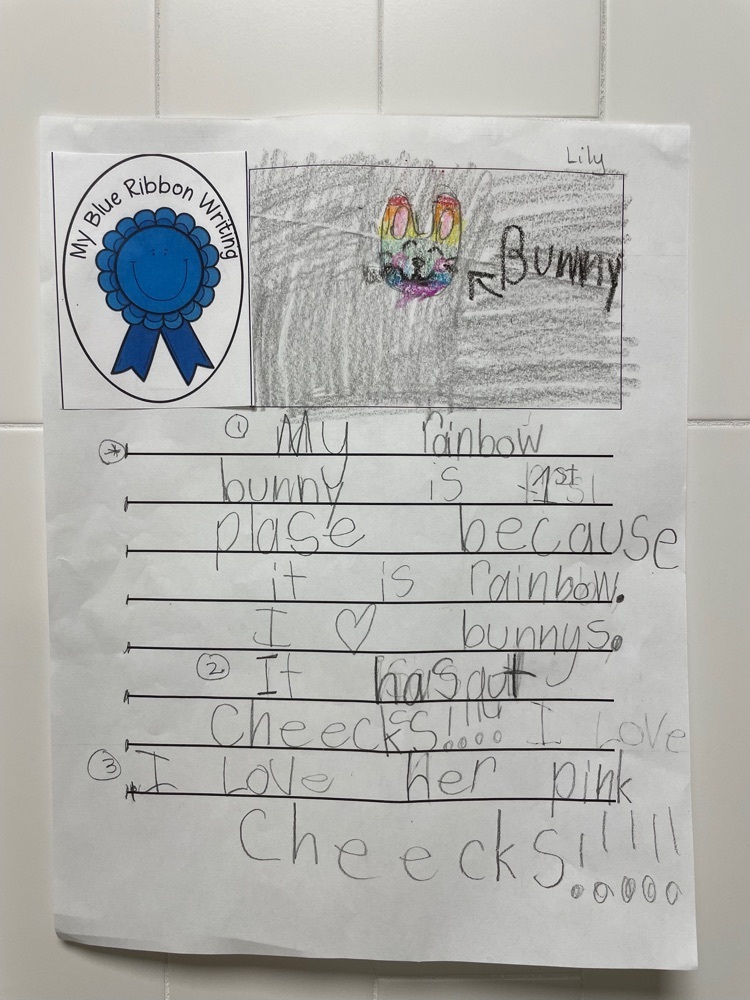 Lily
My Blue Ribbon Writing
Bunny
① My rainbow
bunny is 1st
plase because
it is rainbow.
I ♡ bunnys.
② It hasgot
Cheecks!!!! I Love
③ I Love her pink
Cheecks!!!!!